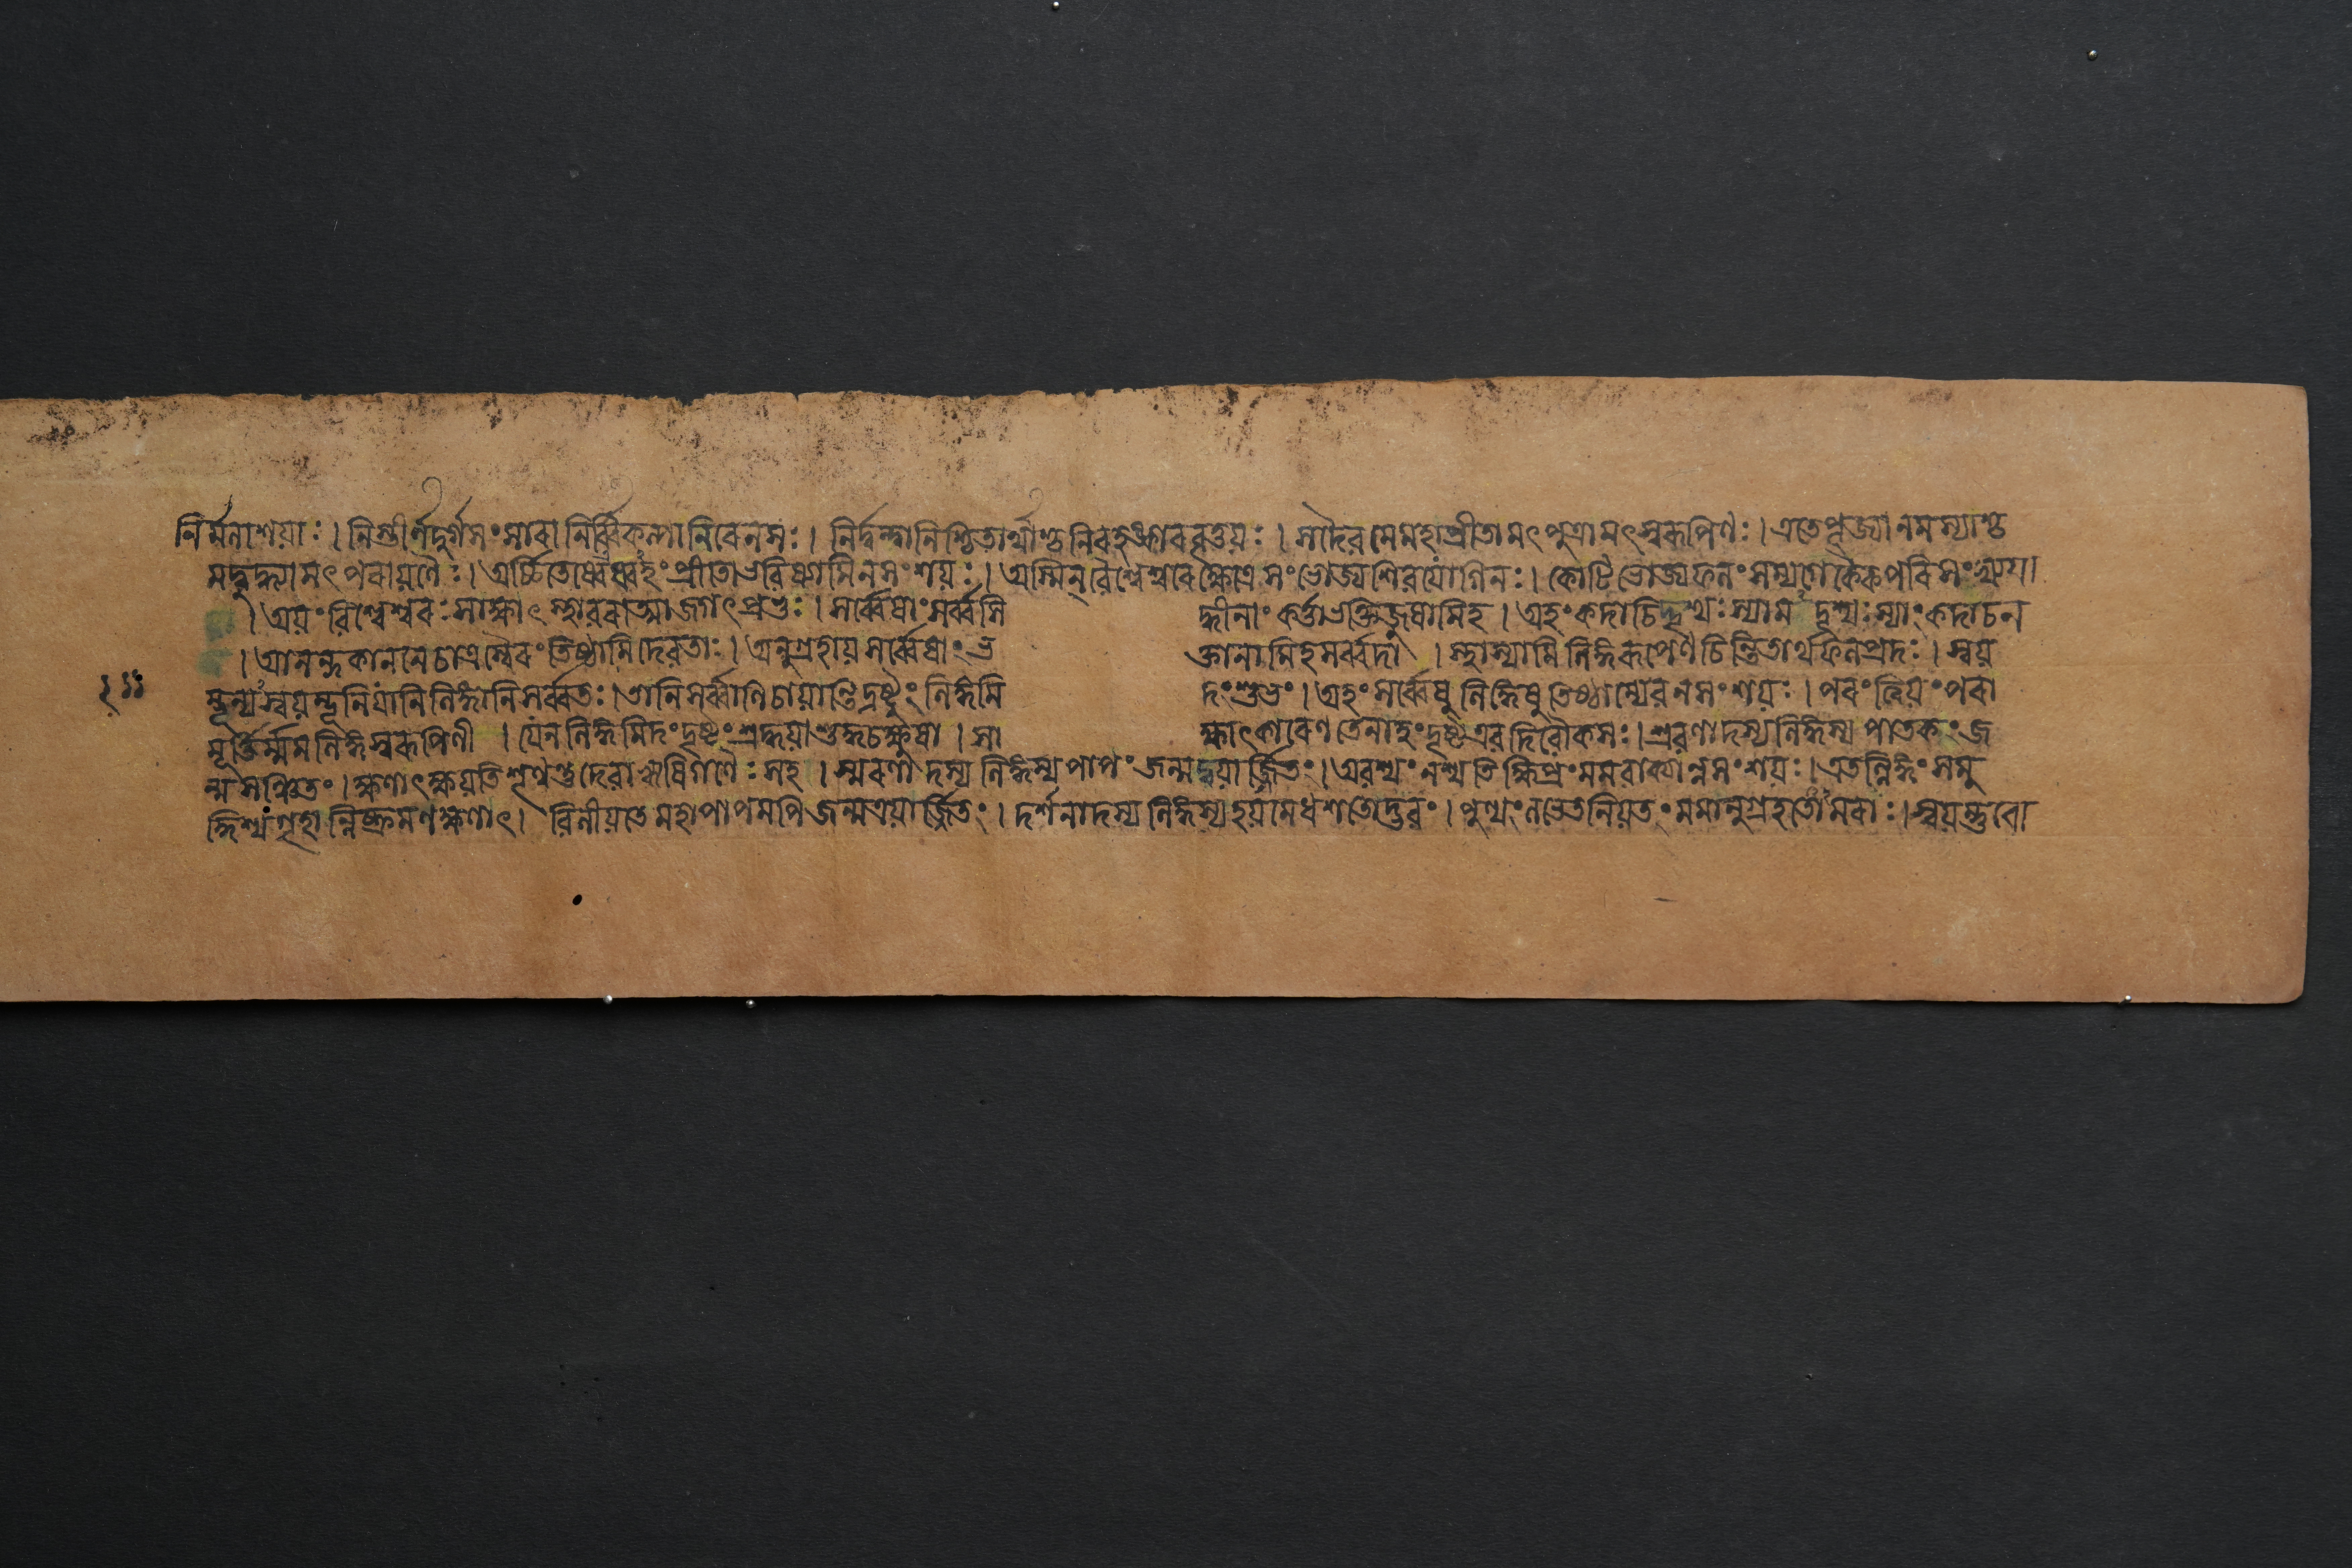 নির্ম্মনাশয়াঃ । নিস্তীর্ণদুর্গসংসারা নির্ব্বিকল্পা নিরেনসঃ । নির্দ্বন্দ্বা নিশ্চিতার্থাশ্চ নিরহঙ্কারবৃত্তয়ঃ । সদৈব মে মহাপ্রীতা মৎপুত্রা মৎস্বরূপিণঃ । এতে পূজ্যা নমস্যাশ্চ
মদ্বুদ্ধ্যা মৎপরায়ণৈঃ । অর্চ্চিতেষ্বেষ্বহং প্রীতো ভবিষ্যামি ন সংশয়ঃ । অস্মিন্ বৈশ্বেশ্বরে ক্ষেত্রে সংভোজ্যা শিবযোগিনঃ । কোটিভোজ্যফলং সম্যগেকৈকপরিসংখ্যয়া
। অয়ং বিশ্বেশ্বরঃ সাক্ষাৎ স্থাবরাত্মা জগৎপ্রভুঃ । সর্ব্বেষাং সর্ব্বসিদ্ধীনাং কর্ত্তা ভক্তিজুষামিহ । অহং কদাচিদ্দৃশ্যঃ স্যামদৃশ্যঃ স্যাং কদাচন
। আনন্দকাননে চাত্র স্বৈরং তিষ্ঠামি দেবতাঃ । অনুগ্রহায় সর্ব্বেষাং ভক্তানামিহ সর্ব্বদা । স্থাস্যামি লিঙ্গরূপেণ চিন্তিতার্থফলপ্রদঃ । স্বয়
ম্ভূন্যস্বয়ম্ভূনি যানি লিঙ্গানি সর্ব্বতঃ । তানি সর্ব্বাণি চায়ান্তি দ্রষ্টুং লিঙ্গমিদং শুভং । অহং সর্ব্বেষু লিঙ্গেষু তিষ্ঠাম্যেব ন সংশয়ঃ । পরং ত্বিয়ং পরা
মূর্ত্তির্ম্মম লিঙ্গস্বরূপিণী । যেন লিঙ্গমিদং দৃষ্টং শ্রদ্ধয়া শুদ্ধচক্ষুষা । সাক্ষাৎকারেণ তেনাহং দৃষ্ট এব দিবৌকসঃ । শ্রবণাদস্য লিঙ্গস্য পাতকং জ
ন্ম সঞ্চিতং । ক্ষণাৎ ক্ষয়তি শৃণ্বন্তু দেবা ঋষিগণৈঃ সহ । স্মরণাদস্য লিঙ্গস্য পাপং জন্মদ্বয়ার্জ্জিতং । অবশ্যং নশ্যতি ক্ষিপ্রং মম বাক্যান্ন সংশয়ঃ । এতল্লিঙ্গং সমু
দ্দিশ্য গৃহান্নিষ্ক্রমণক্ষণাৎ । বিলীয়তে মহাপাপমপি জন্মত্রয়ার্জ্জিতং । দর্শনাদস্য লিঙ্গস্য হয়মেধশতোদ্ভবং । পুণ্যং লভেত নিয়তং মমানুগ্রহতোঽমরাঃ । স্বয়ম্ভুবো